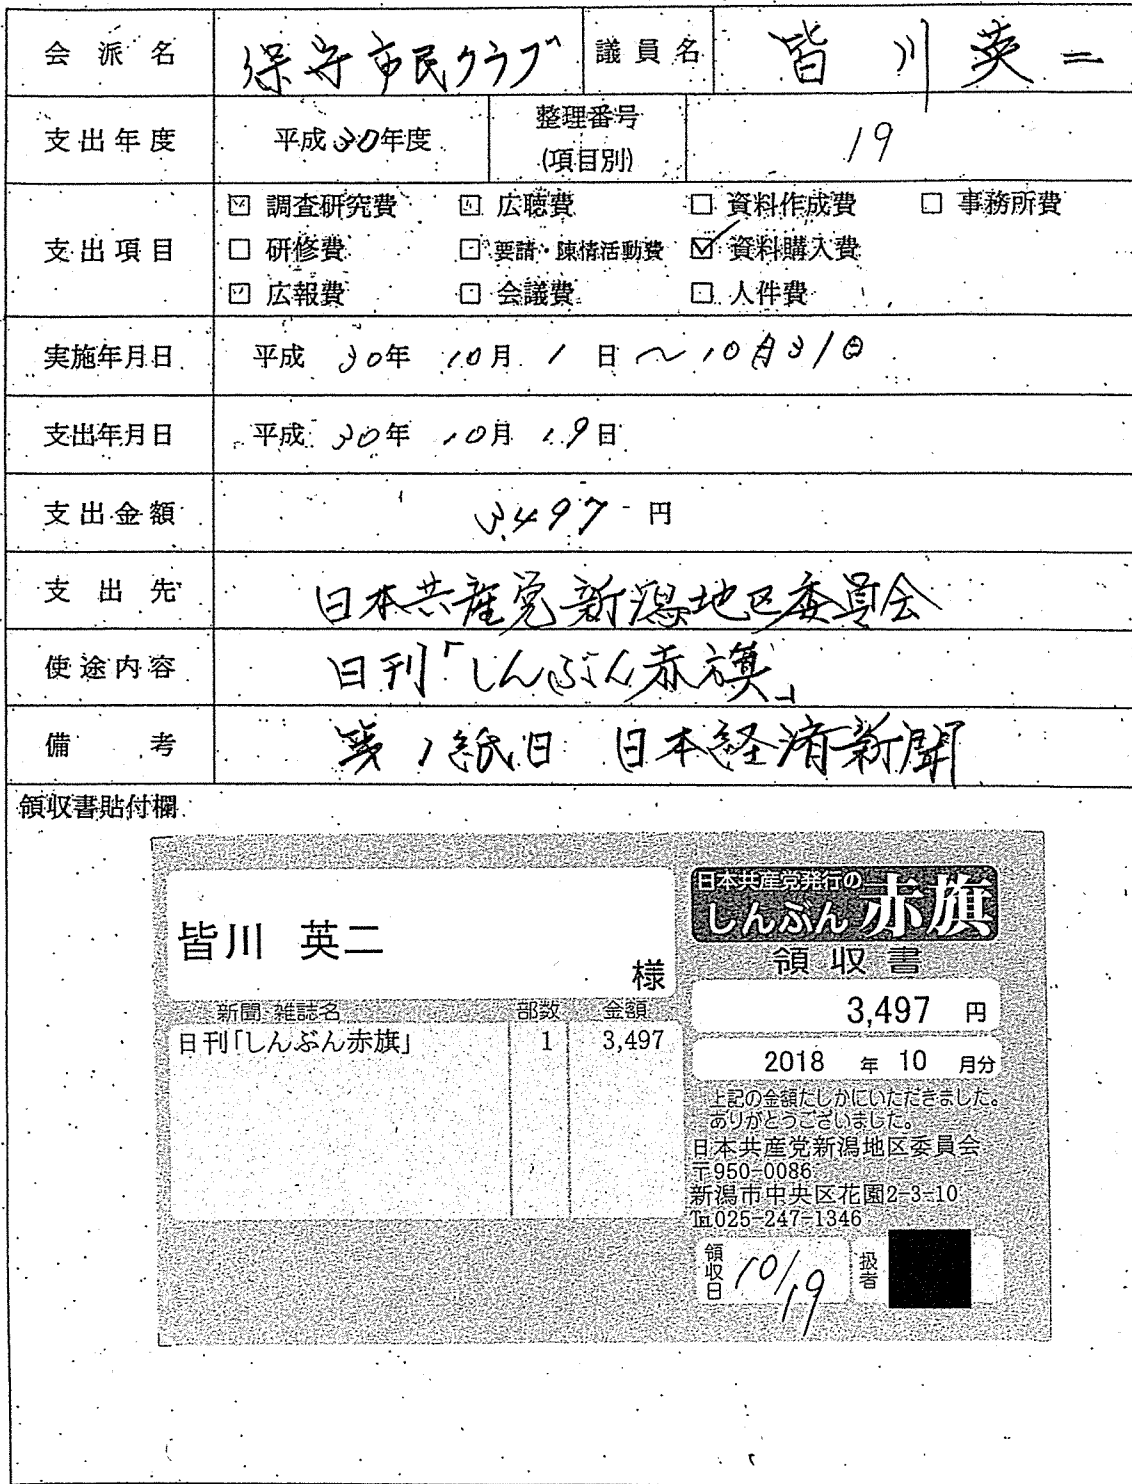 会派名 保守市民クラブ 議員名 皆川英二
支出年度 平成30年度 整理番号(項目別) 19
支出項目
□ 調査研究費 □ 広聴費 □ 資料作成費 □ 事務所費
□ 研修費 □ 要請・陳情活動費 ☑ 資料購入費
□ 広報費 □ 会議費 □ 人件費
実施年月日 平成 30年 10月 1日 〜10月31日
支出年月日 平成 30年 10月 19日
支出金額 3497 円
支出先 日本共産党新潟地区委員会
使途内容 日刊「しんぶん赤旗」
備考 第1紙目 日本経済新聞
領収書貼付欄
皆川 英二 様
新聞 雑誌名 部数 金額
日刊「しんぶん赤旗」 1 3,497
日本共産党発行の
しんぶん赤旗
領収書
3,497 円
2018 年 10 月分
上記の金額たしかにいただきました。
ありがとうございました。
日本共産党新潟地区委員会
〒950-0086
新潟市中央区花園2-3-10
℡025-247-1346
領収日 10/19 扱者